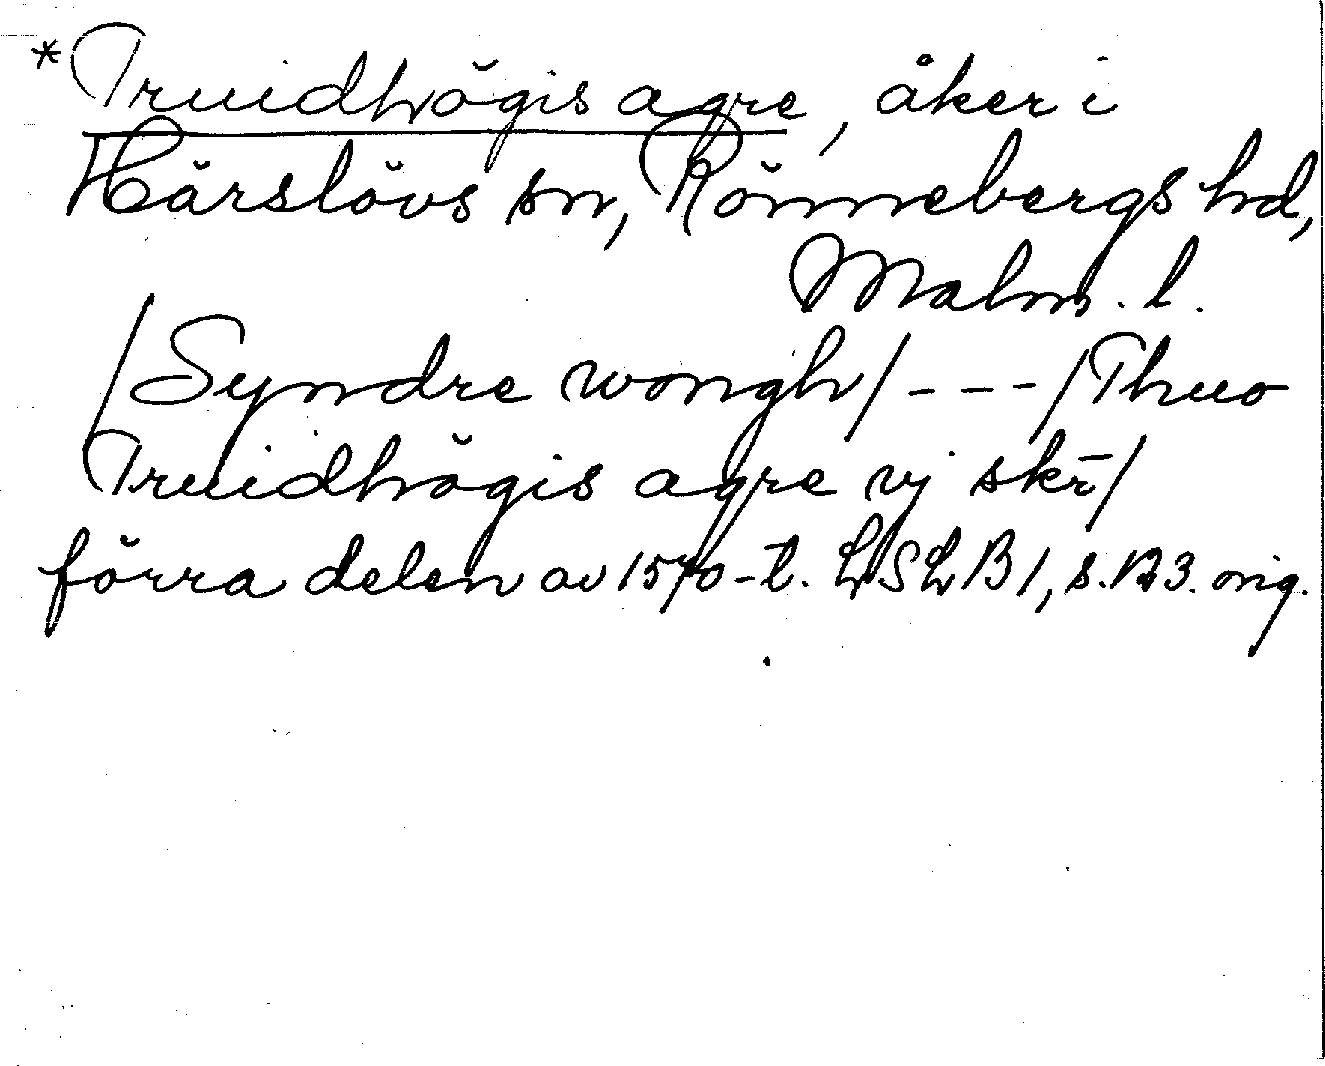 *Truidhögis agre, åker i
Härslövs sn, Rönnebergs hd,
Malm. l.
/Syndre wongh/ - - - /Thuo
Truidhögis agre vj skr̄/
förra delen av 1570-t. LSLB 1, s. 123. orig.